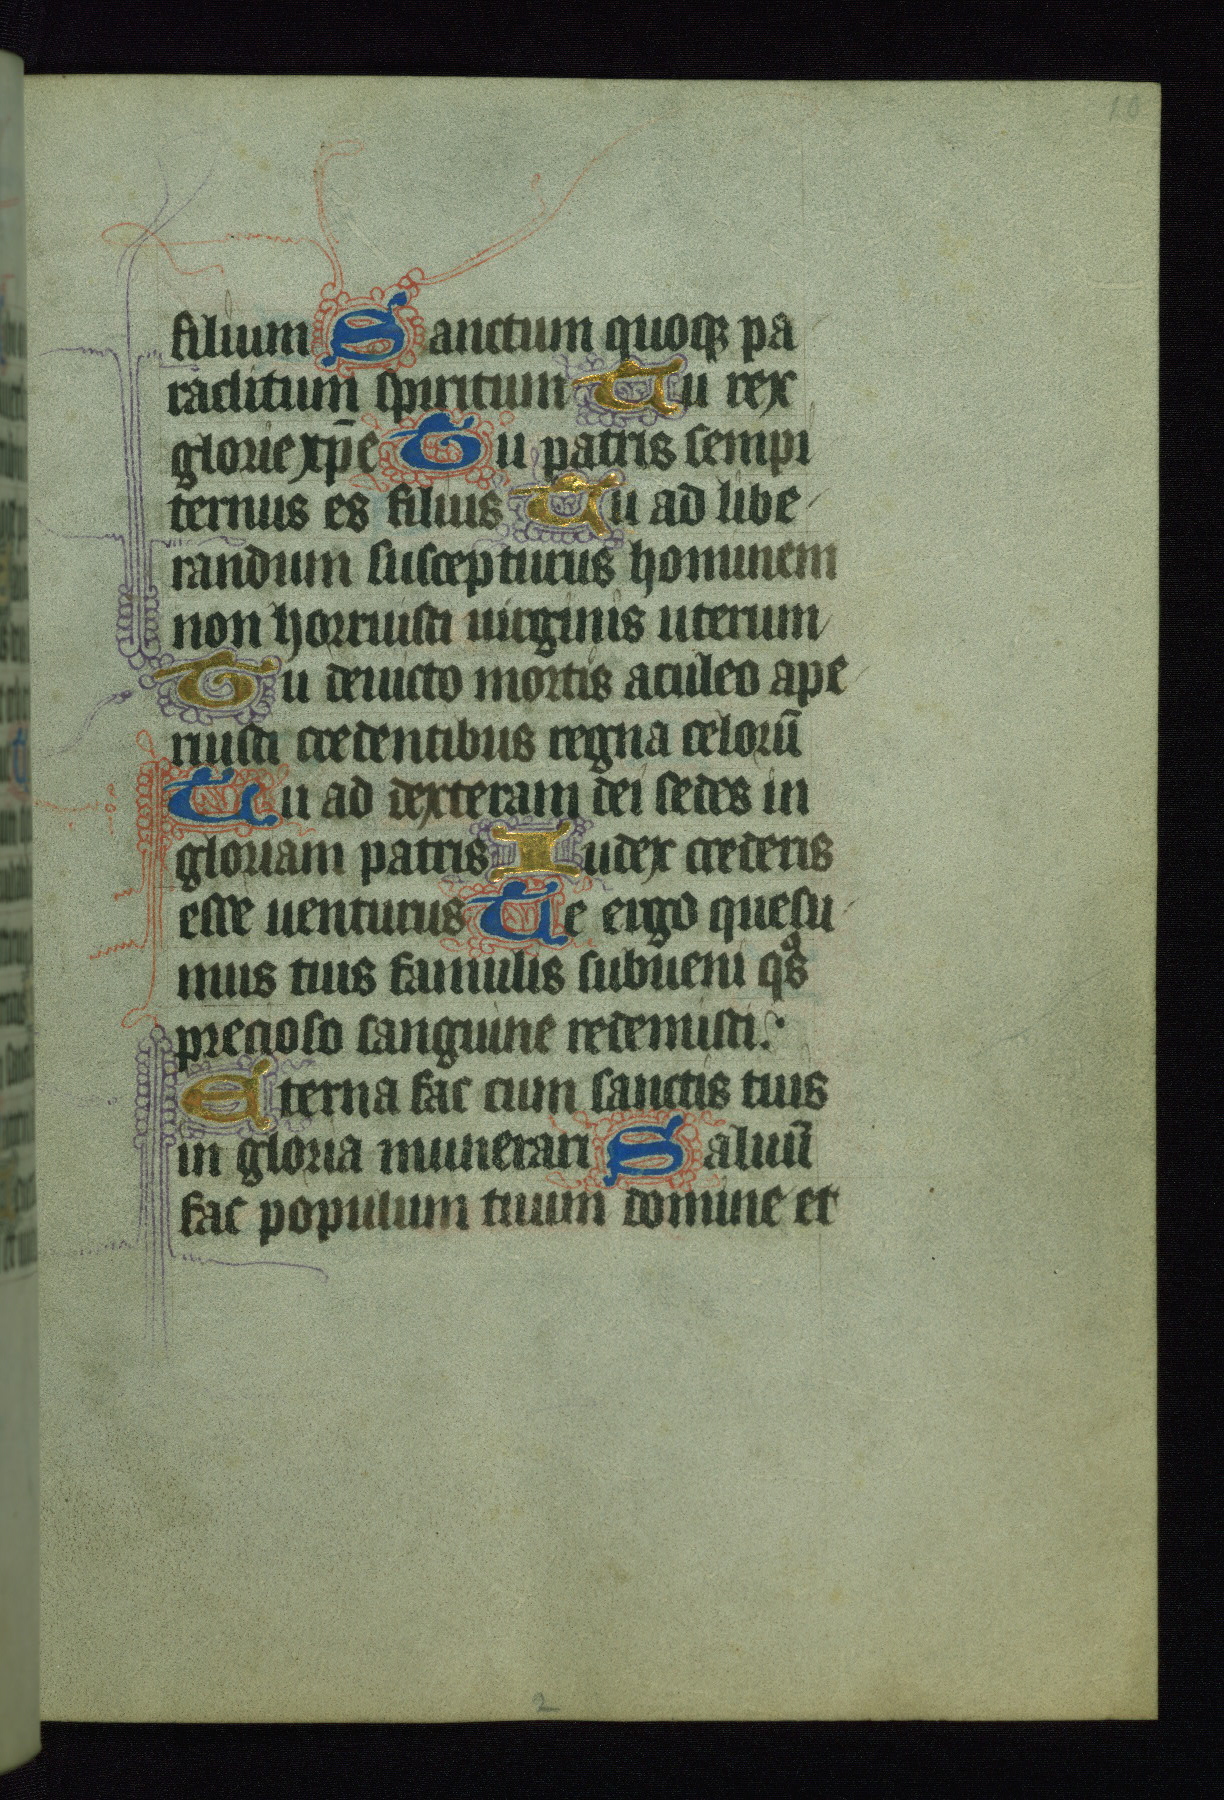 10
filium Sanctum quoqꝫ pa
raclitum spiritum Tu rex
glorie xp̄e Tu patris sempi
ternus es filius Tu ad libe
randum suscepturus hominem
non horruisti uirginis uterum
Tu deuicto mortis aculeo ape
ruisti credentibus regna celorū
Tu ad dexteram dei sedes in
gloriam patris Iudex crederis
esse uenturus Te ergo quesu
mus tuis famulis subueni qͦs
precioso sanguine redemisti.
Eterna fac cum sanctis tuis
in gloria munerari Saluū
fac populum tuum domine et
2